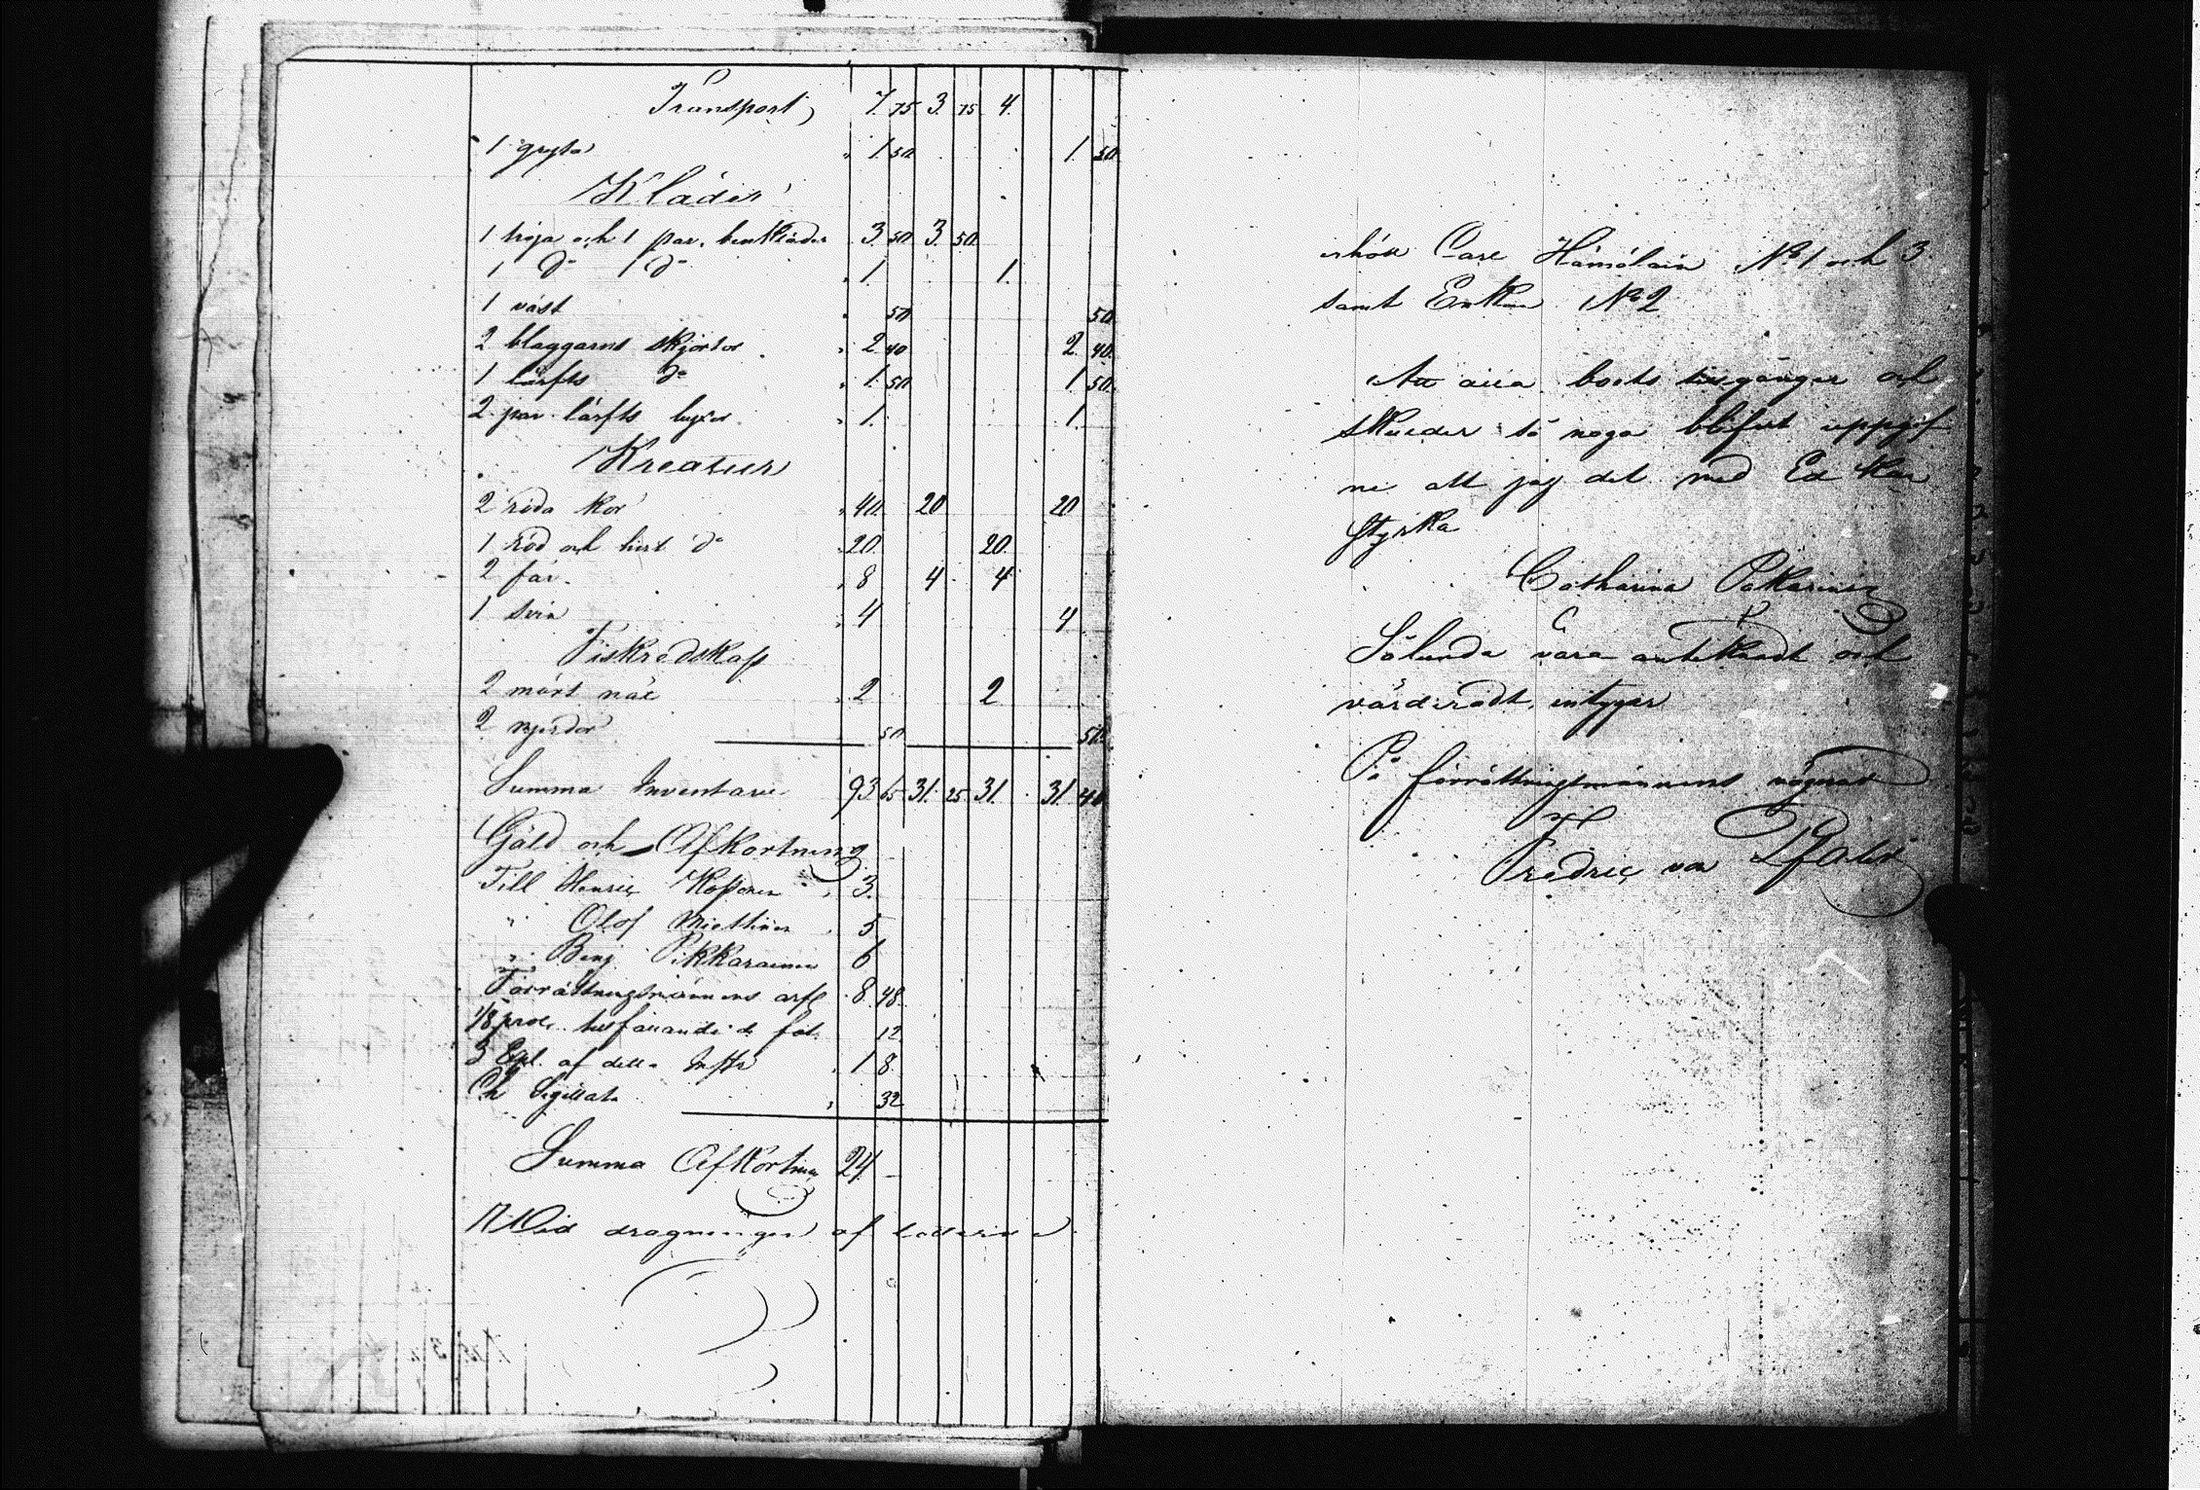 Transport, 7. 75. 3. 75. 4.
1 gryta " 1. 50. 1. 50.
Kläder
1 tröja och 1 par. benkläder 3. 50. 3. 50.
1 d:o 1 d:o " 1. 1.
1 väst " 50. 50.
2 blaggarns skjortor " 2. 40 2. 40.
1 lärfts d:o " 1. 50. 1 50.
2. par. lärfts byxor " 1. 1.
Kreatur
2 röda kor " 40. 20 20
1 röd och hvit d:o " 20. 20.
2 får. " 8 4. 4
1 svin " 4 4
Fiskredskap
2 mört nät " 2 2
2 mjerdor 50 50.
Summa Inventarie 93 65 31. 25 31. 31. 40
Gäld och Afkortning
Till Henric Kosonen " 3.
" Olof Miettinen " 5
" Benj. Pikkarainen 6
Förrättningsmännens arfv. 8. 48.
1/8 proc. 12.
3 Exl. af detta Instr " 1 8.
Ch Sigillat. " 32
Summa Afkortning 24 –
Vid dragningen af lotterna
erhöll Carl Hämäläin N:o 1 och 3.
samt Enkan N:o 2
Att alla boets tillgångar och
skulder så noga blifvit uppgif
ne att jag det med Ed kan
styrka
Catharina Pakarinen
Sålunda vara antecknadt och
värderadt, intygar
På förrättningsmännens vägnar
Fredric von Pfaler